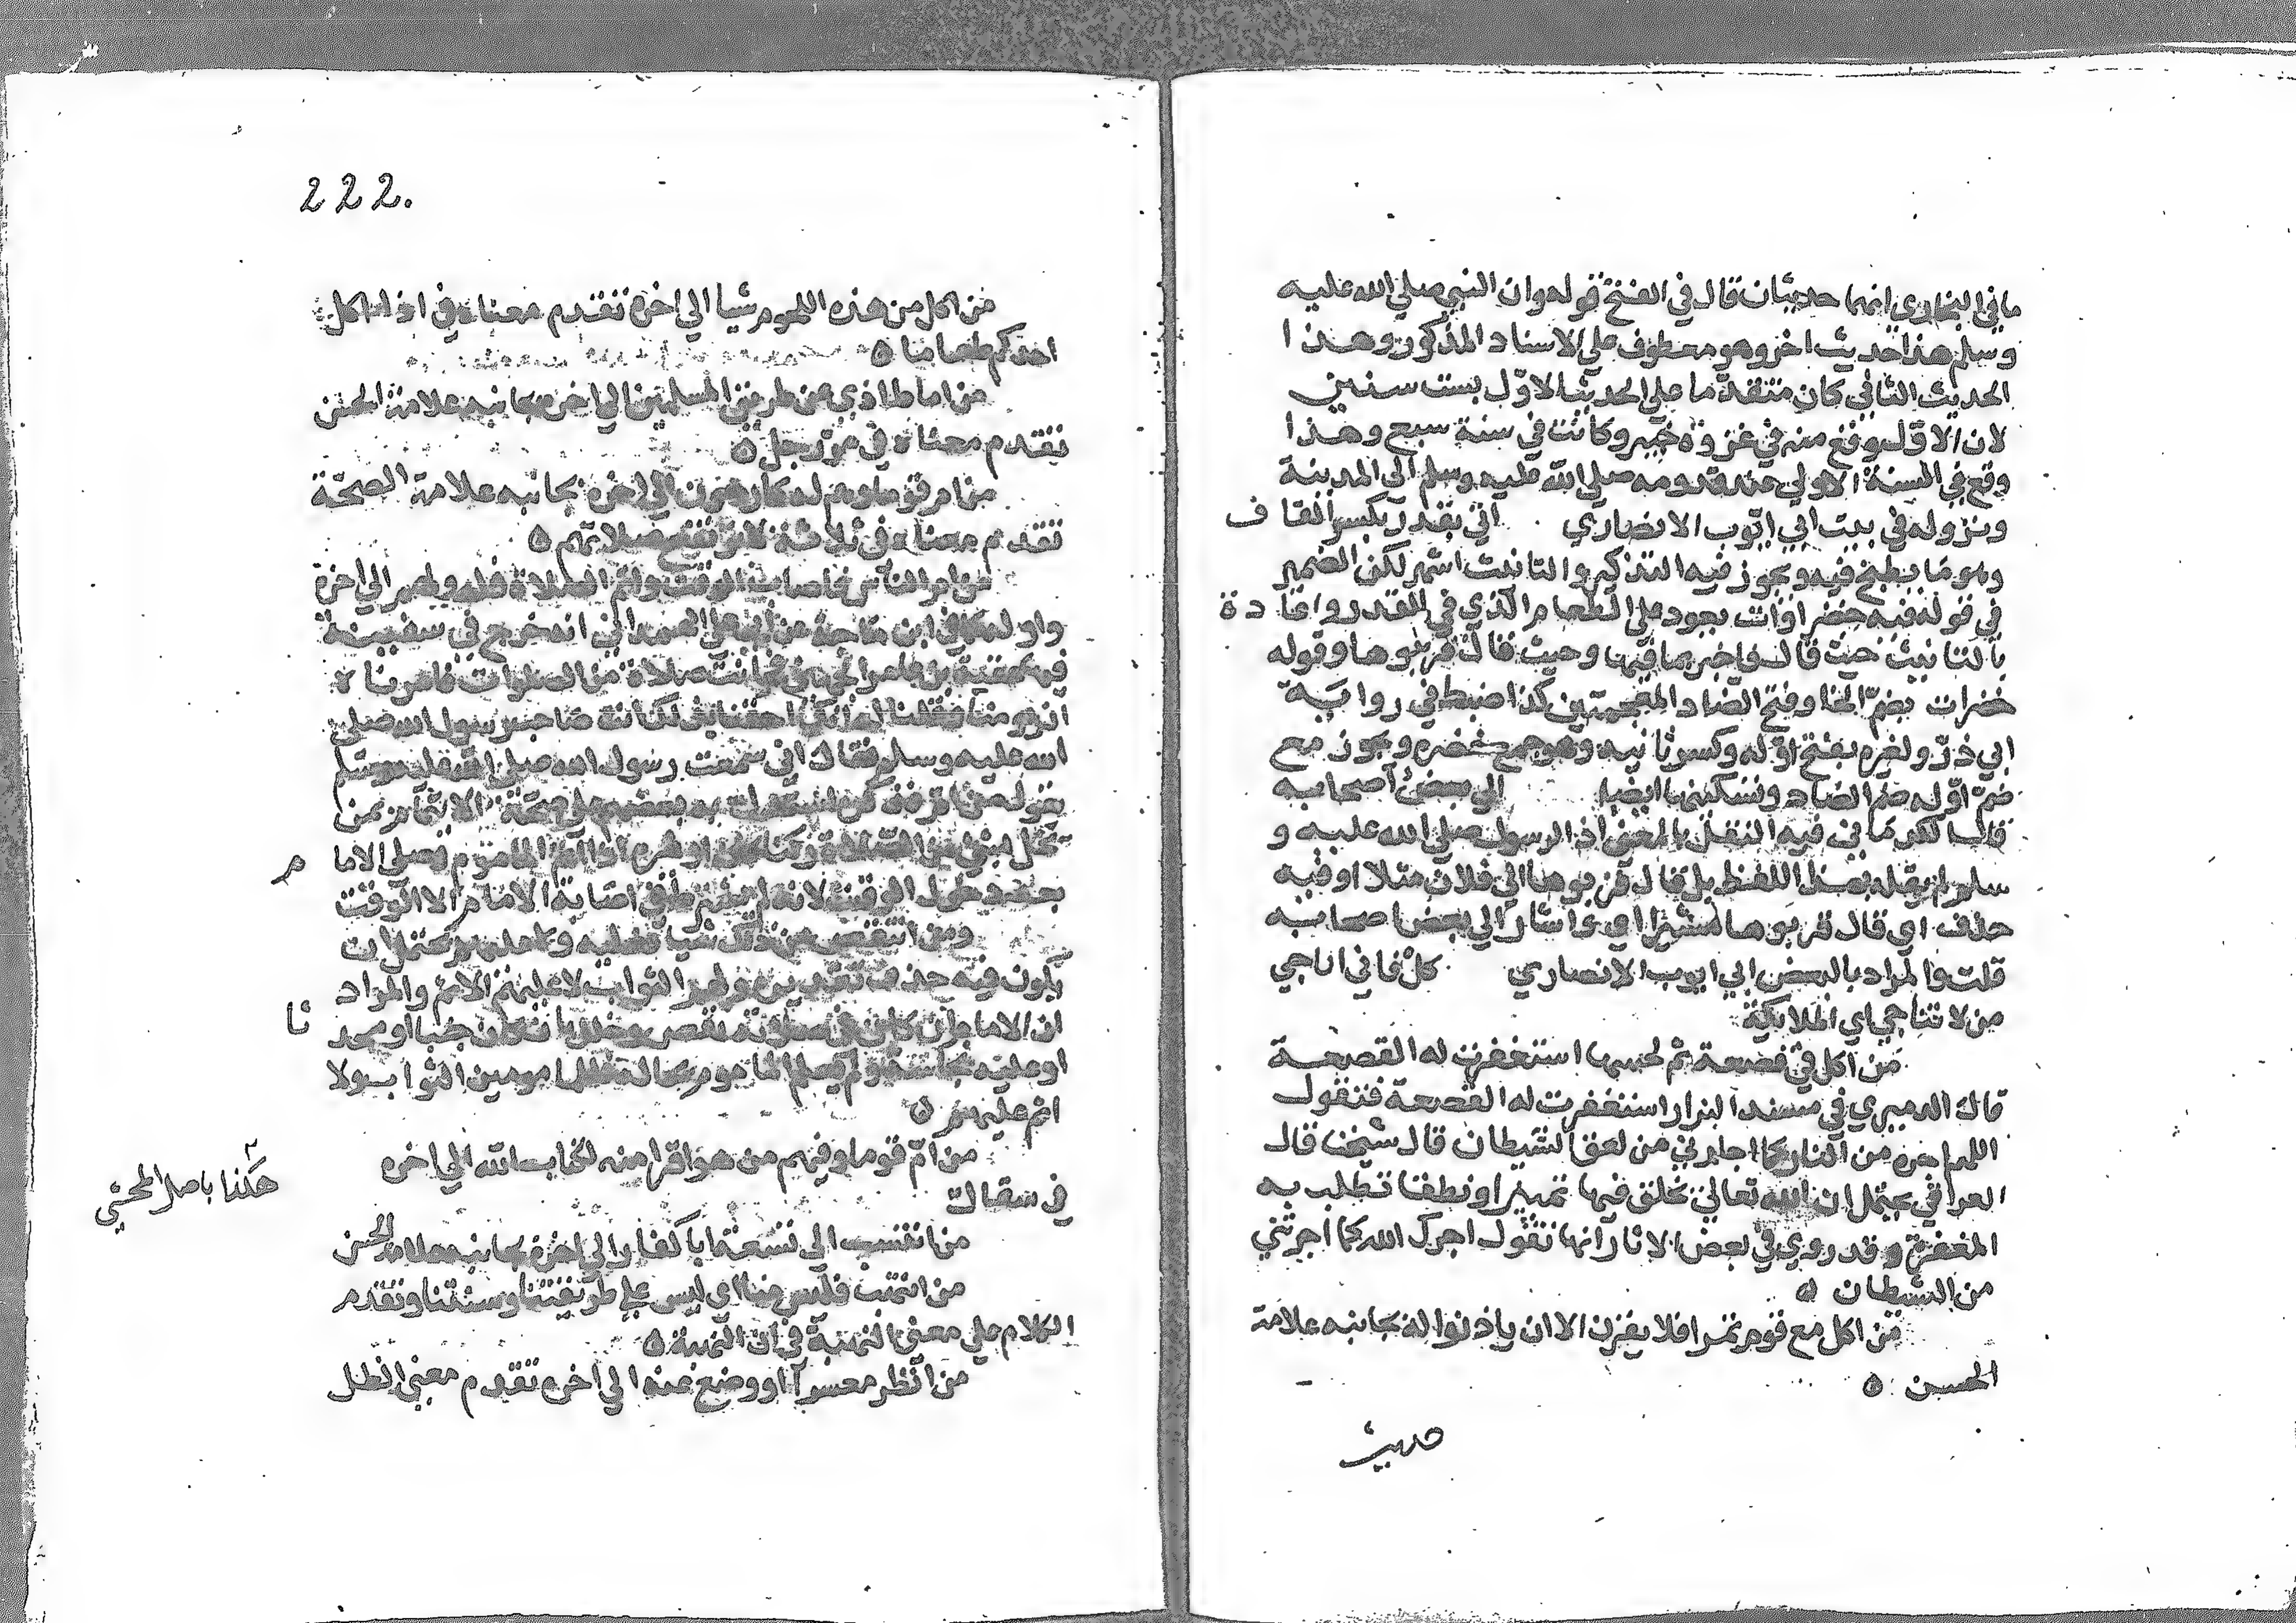 ما في البخاري انهما حديثان قال في الفتح قوله وان النبي صلي الله عليه
وسلم هذا حديث اخر وهو معطوف علي الاسناد المذكور وهذا
الحديث الثاني كان متقدما علي الحديث الاول بست سنين
لان الاول وقع منه في غزوة خيبر وكانت في سنة سبع وهذا
وقع في السنة الاولي عند قدومه صلي الله عليه وسلم الي المدينة
ونزوله في بيت ابي ايوب الانصاري اتي بقدر بكسر القاف
وهو ما يطبخ فيه ويجوز فيه التذكير والتانيث اشهر لكن الضمير
في قوله فيه خضرات يعود علي الطعام الذي في القدر واعاده
بالتانيث حيث قال فاخبر بما فيها وحيث قال قربوها وقوله
خضرات بضم الخا وفتح الضاد المعجمتين كذا ضبط في رواية
ابي ذر ولغيره بفتح اوله وكسر ثانيه وهو جمع خضره ويجوز مع
ضم اوله ضم الضاد وتسكينها ايضا الي بعض اصحابه
قال الكرماني فيه النقل بالمعني اذ الرسول صلي الله عليه و
سلم لم يقله بهذا اللفظ بل قال قربوها الي فلان مثلا او فيه
حذف اي قال قربوها مشيرا او اشار الي بعض اصحابه
قلت والمراد بالبعض ابي ايوب الانصاري كل فاني اناجي
من لا تناجي اي الملايكة
من اكل في قصعة ثم لحسها استغفرت له القصعة
قال الدميري في مسند البزار استغفرت له القصعة فتقول
اللهم اجره من النار كما اجارني من لعق الشيطان قال شيخنا قال
العراقي يحتمل ان الله تعالي يخلق فيها تمييزا ونطقا تطلب به
المغفرة وقد روي في بعض الاثار انها تقول اجرك الله كما اجرتني
من الشيطان ه
من اكل مع قوم تمرا فلا يقرن الا ان ياذنوا له بجانبه علامة
الحسن ه
حديث
222.
من اكل من هذه اللحوم شيا الي اخره تقدم معناه في اذا اكل
احدكم طعاما ه
من اماط اذي عن طريق المسلمين الي اخره بجانبه علامة الحسن
تقدم معناه في مر رجل ه
من ام قوما وهم له كارهون الي اخره بجانبه علامة الصحة
تقدم معناه في ثلاثة لا ترتفع صلاتهم ه
من ام الناس فاصاب الوقت واتم الصلاة فله ولهم الي اخره
واوله كما في ابن ماجة عن ابي علي الهمداني انه خرج في سفينة
فيها عقبة بن عامر الجهني فحانت صلاة من الصلوات فامرناه
ان يومنا فقلنا له انك احقنا بذلك انت صاحب رسول الله صلي
الله عليه وسلم فقال اني سمعت رسول الله صلي الله عليه وسلم
يقول من ام فذكره استدل به بعضهم علي صحة الائتمام بمن
بعد دخول الوقت لانه لم يشترط في اصابة الامام الا الوقت
ومن انتقص من ذلك شيا فعليه
يكون فيه حذف تقديره ولهم الثواب لا عليهم الاثم والمراد
ان الامام ان كان في صلاته نقص وخلل بان كان جنبا او محدثا
او عليه نجاسة ولم يعلم الماموم بحاله فللمامومين الثواب ولا
اثم عليهم ه
من ام قوما وفيهم من هو اقرا منه لكتاب الله الي اخره
في سفال
هكذا باصل المحشي
من انتسب الي تسعة ابا كفار الي اخره بجانبه علامة الحسن
من انتهب فليس منا اي ليس علي طريقتنا وسنتنا وتقدم
الكلام علي معني النهبة في ان النهبة ه
من انظر معسرا او وضع عنه الي اخره تقدم معني الظل